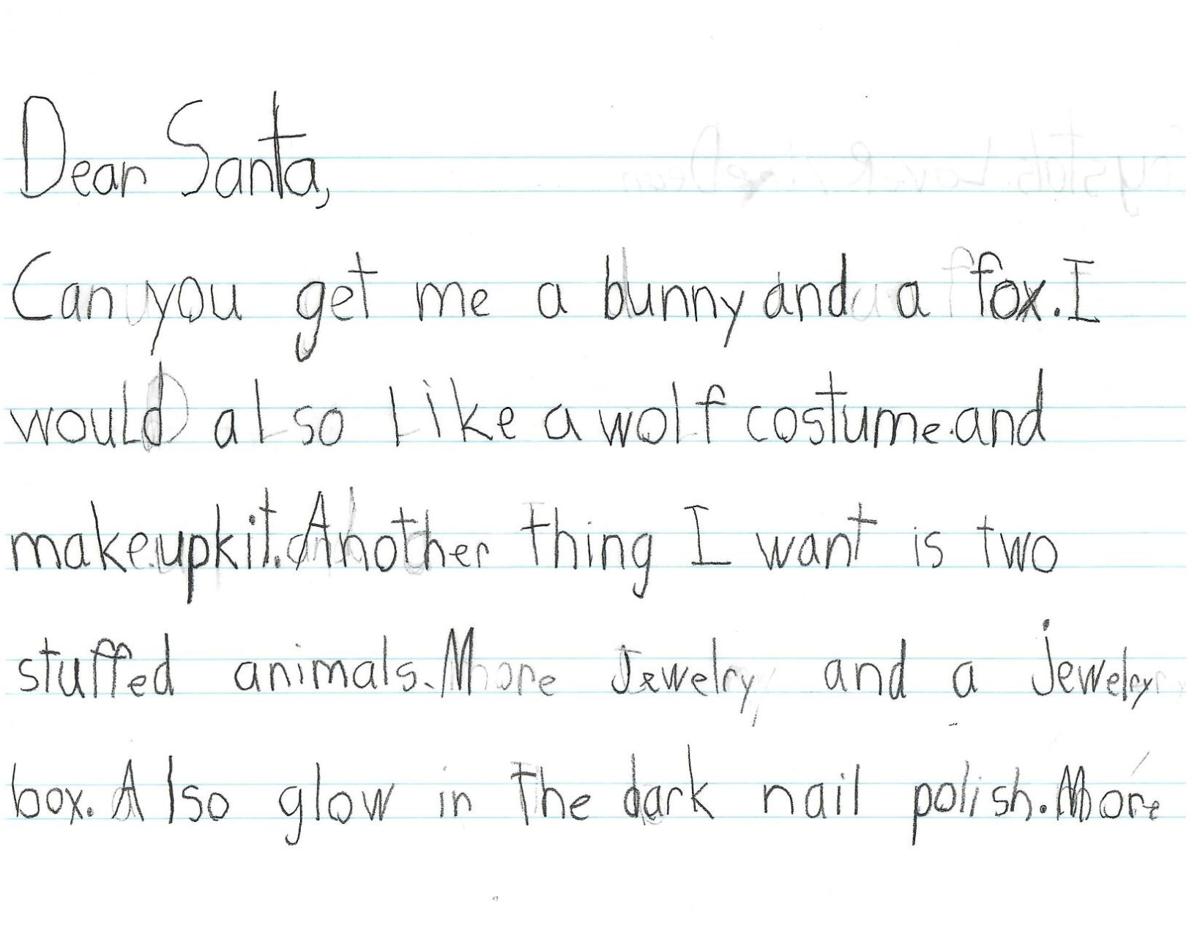 Dear Santa,
Can you get me a bunny and a fox. I
would also like a wolf costume.and
makeupkit. Another thing I want is two
stuffed animals. More Jewelry, and a jewelry
box. Also glow in the dark nail polish. More